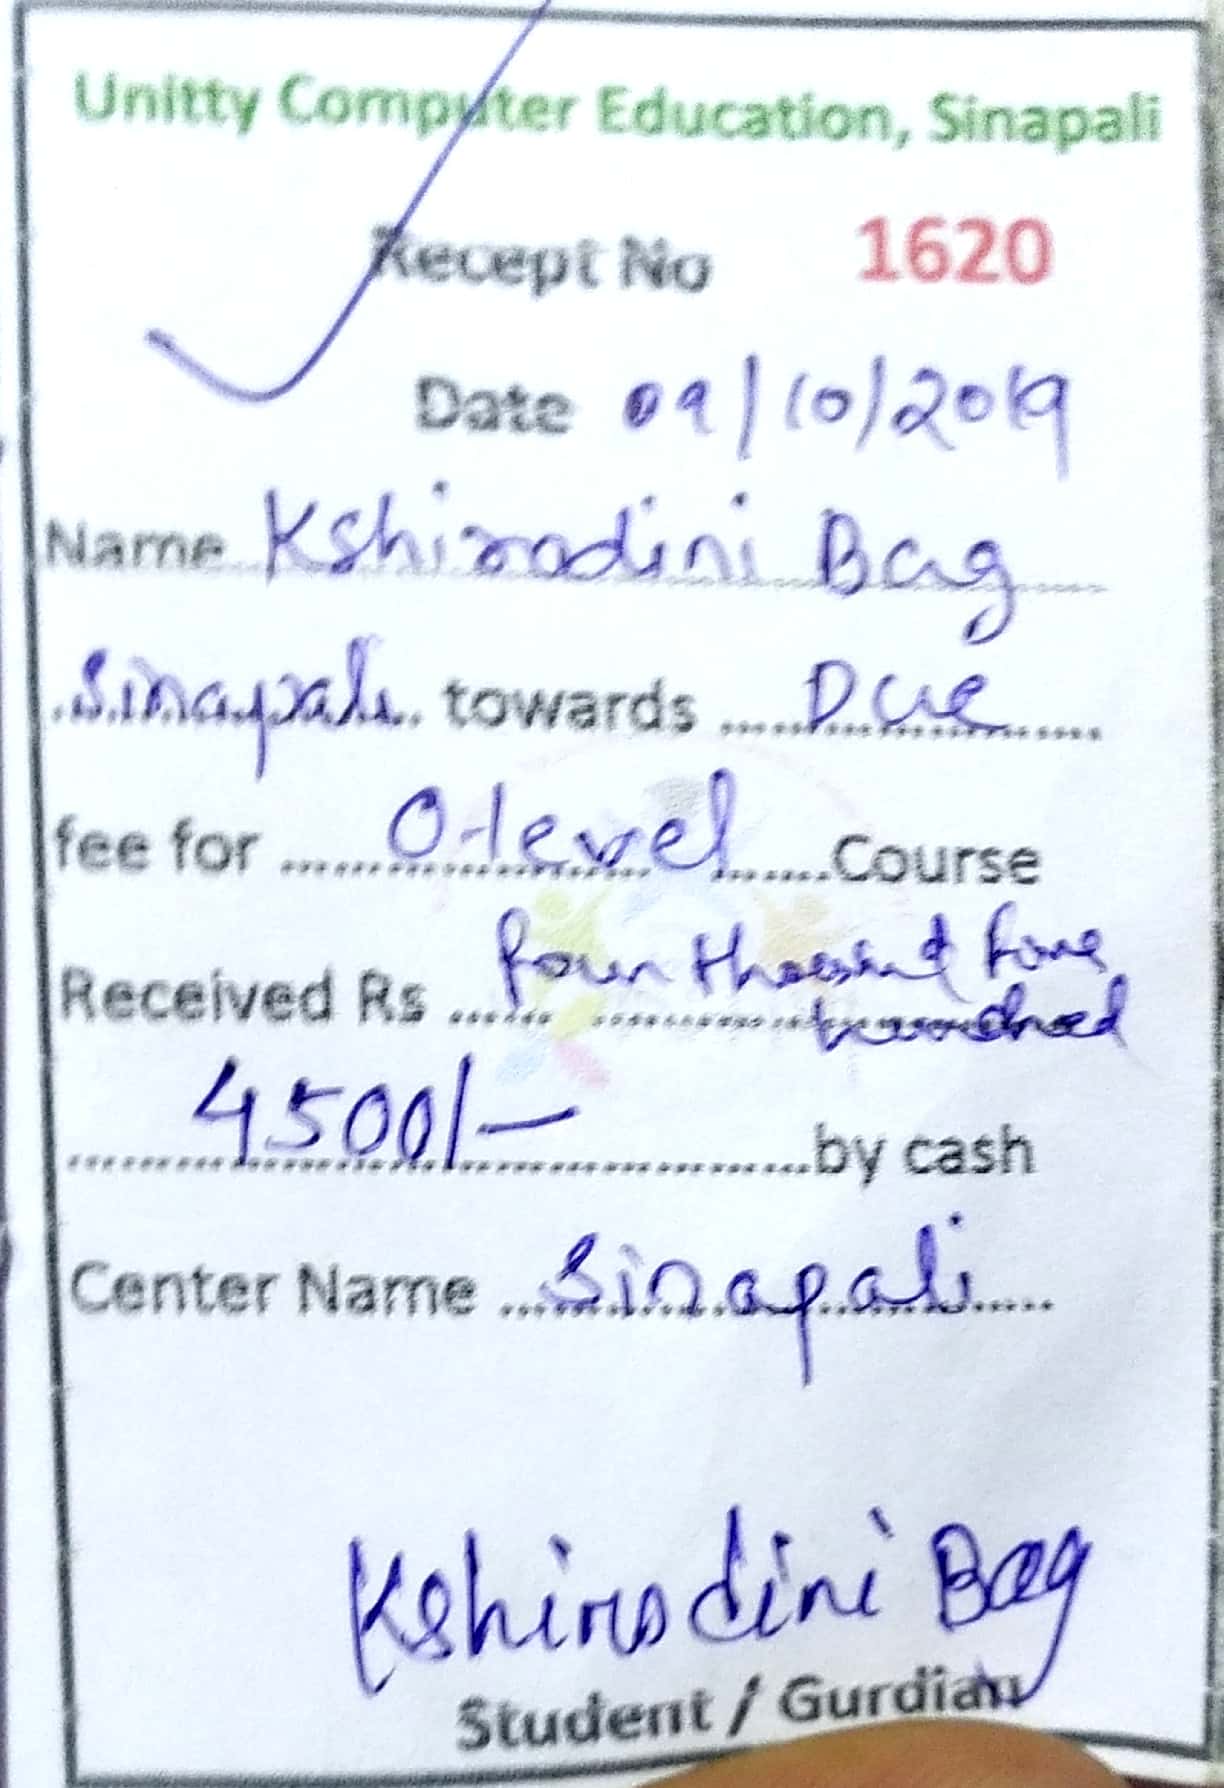 Unitty Computer Education, Sinapali
Recept No 1620
Date 09/10/2019
Name Kshirodini Bag
Sinapali towards Due
fee for O-level Course
Received Rs four thousand five
hundred
4500/- by cash
Center Name Sinapali
Kshirodini Bag
Student / Gurdian